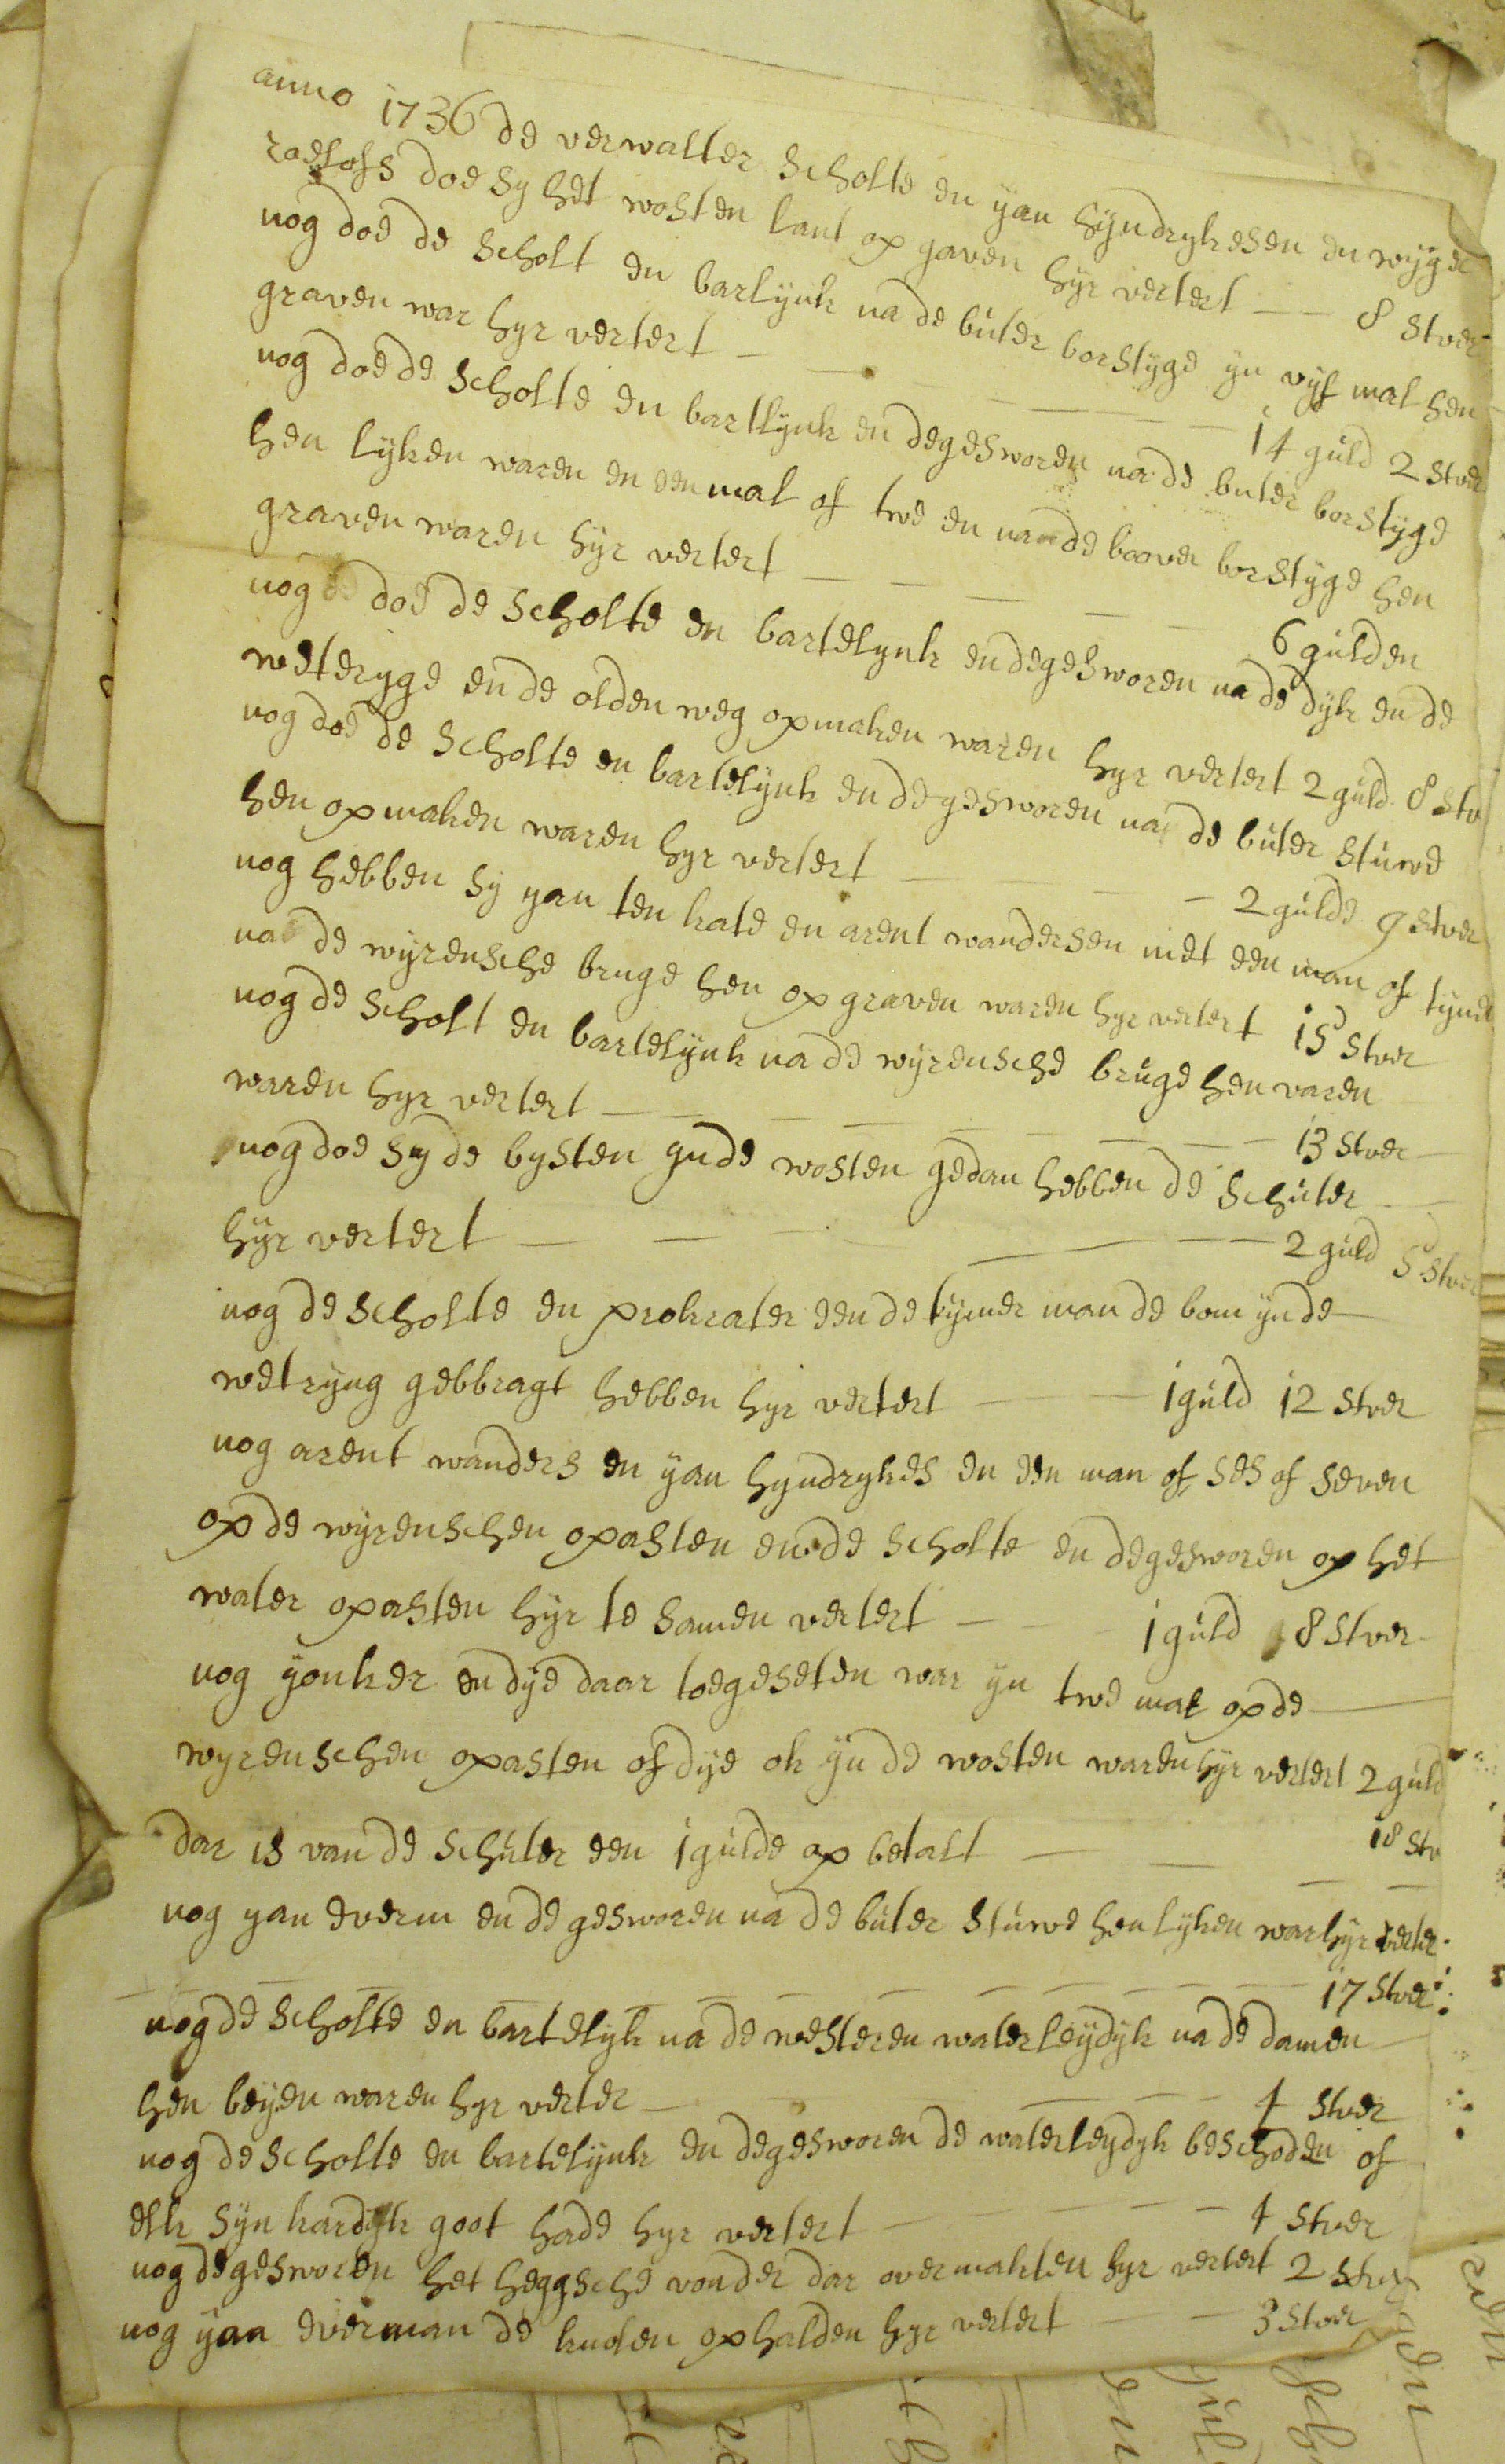 anno 1736 de verwalter scholte en yan hyndryksen en wyger
roelofs doe sy het wosten lant op gaven hyr vertert — — 8 stver
nog doe de scholt en barlynk na de buter borstyge yn vyf mal hen
graven war hyr vertert — — — — — — 14 guld 2 stver
nog doe de scholte en bartlynk en degesworen na de buter borstyge
hen lyken waren en een mal of twe en na de boover borstyge hen
graven waren hyr vertert — — — — — 6 gulden
nog doe de scholte en bartelynk en degesworen na de dyk en de
weterygge en de olden weg opmaken waren hyr vertert 2 guld 8 stv
nog doe de scholte en bartelynk en degesworen na de buter stuwe
hen opmaken waren hyr vertert — — — — 2 gulde 9 stver
nog hebben sy yan ten kate en arent wandersen met een man of tyne
na de wyrensche bruge hen op graven waren hyr vertert 15 stver
nog de scholt en bartelynk na de wyrensche bruge hen varen
waren hyr vertert — — — — — — — 13 stver
nog doe sy de bysten yn de wosten gedan hebben de schuter
hyr vertert — — — — — 2 guld 5 stver
nog de scholte en prokrater een de tymer man de bom yn de
wetryng gebbragt hebben hyr vertert — — 1 guld 12 stver
nog arent wanders en yan hyndrykes en een man of ses of seven
op de wyrenschen opasten en de scholte en degesworen op het
water opasten hyr te samen vertert — — — 1 guld 8 stver
nog yonker en dye daar toegeseten war yn twe mal op de
wyrenschen opasten of dye ok yn de wosten waren hyr vertert 2 guld
18 stv
dar is van de schuter een 1 gulde op betalt — — — —
nog yan everm en de gesworen na de buter stuwe hen lyken war hyr verter
— — — — — — — — — — 17 stver
nog de scholte en bartelyk na de westeren waterleydyk na de damen
hen beyen waren hyr verter — — — — 4 stver
nog de scholte en bartelynk en degesworen de waterleydyk beschoden of
elk syn kardyk goot hade hyr vertert — — — 4 stver
nog degesworen het heggsche vonder dar overmakten hyr vertert 2 stver
nog yan everman de kuolen ophalden hyr vertert — — 3 stver